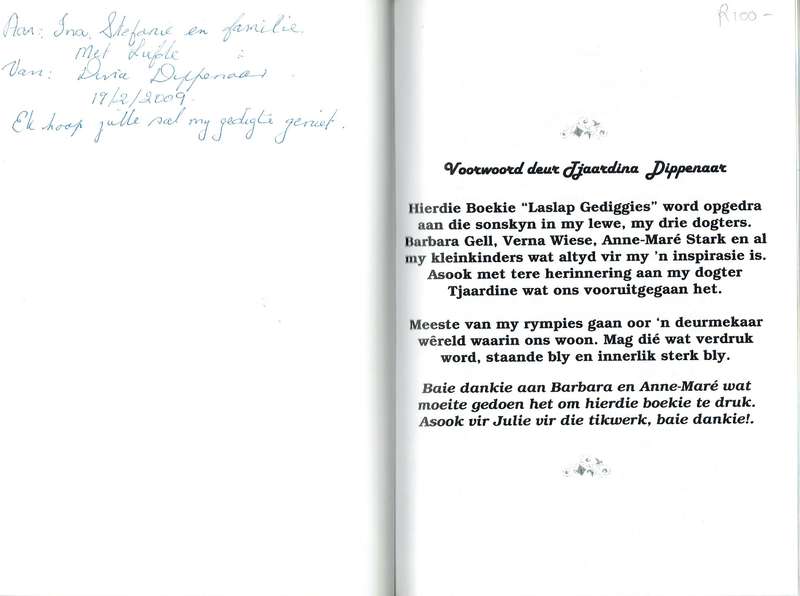 Aan: Ina, Stefanie en familie.
Met Liefde
Van: Dina Dippenaar
19/2/2009.
Ek hoop julle sal my gedigte geniet.
R100-
Voorwoord deur Tjaardina Dippenaar
Hierdie Boekie “Laslap Gediggies” word opgedra
aan die sonskyn in my lewe, my drie dogters.
Barbara Gell, Verna Wiese, Anne-Maré Stark en al
my kleinkinders wat altyd vir my 'n inspirasie is.
Asook met tere herinnering aan my dogter
Tjaardine wat ons vooruitgegaan het.
Meeste van my rympies gaan oor 'n deurmekaar
wêreld waarin ons woon. Mag dié wat verdruk
word, staande bly en innerlik sterk bly.
Baie dankie aan Barbara en Anne-Maré wat
moeite gedoen het om hierdie boekie te druk.
Asook vir Julie vir die tikwerk, baie dankie!.